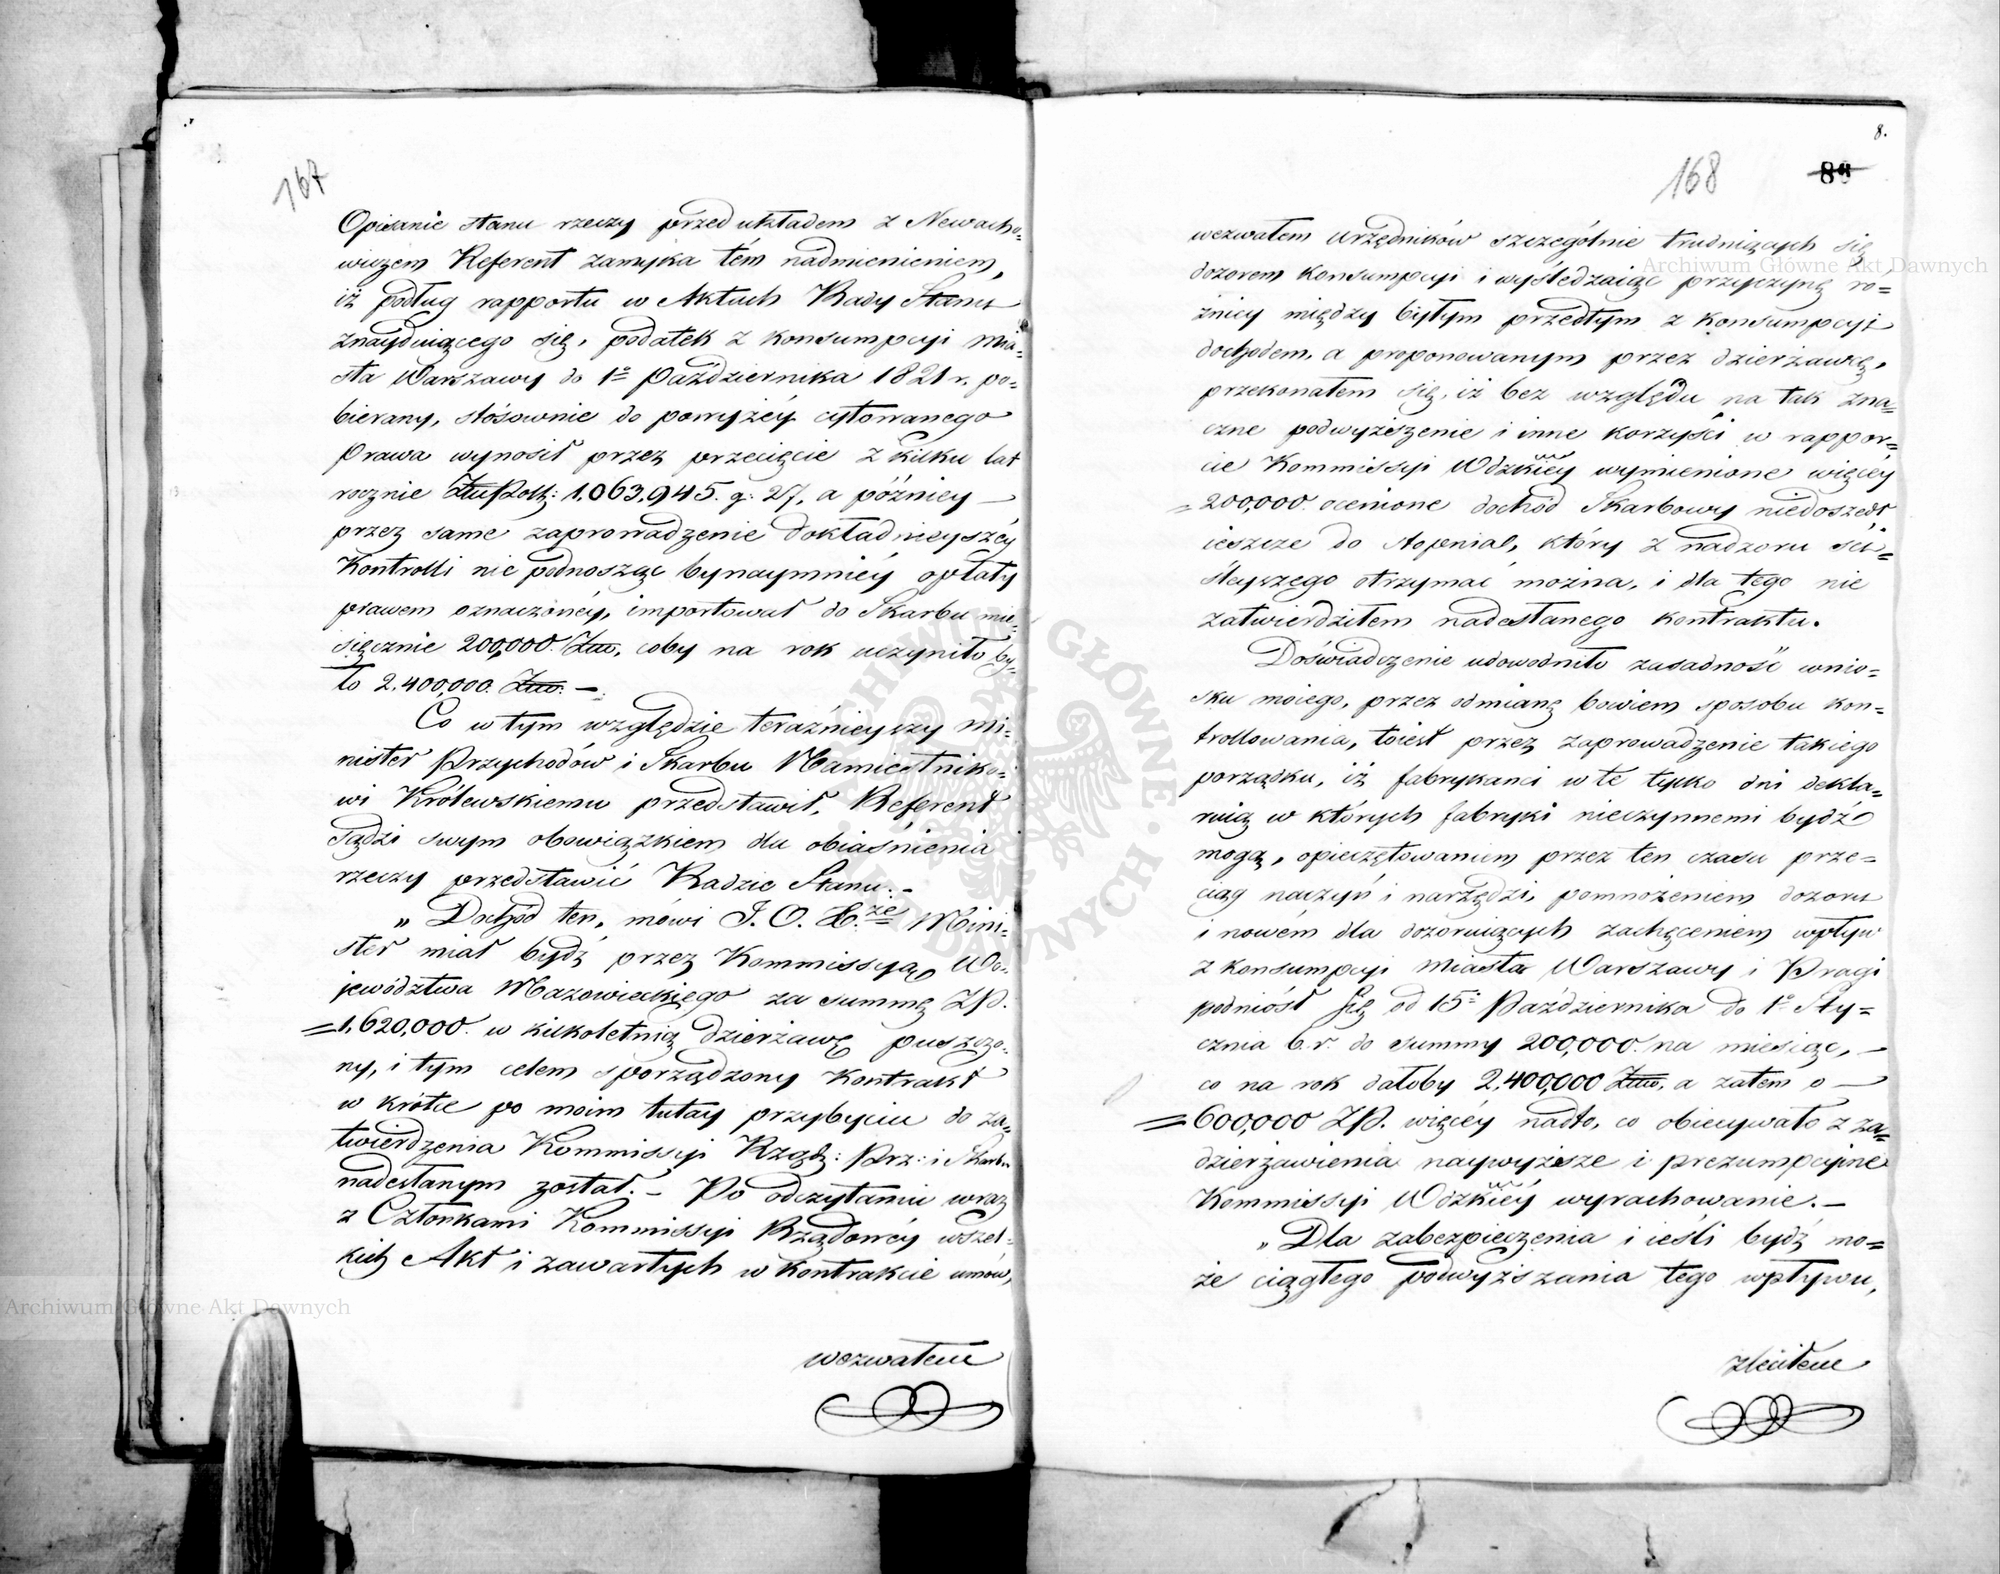 167
Opisanie stanu rzeczy przed układem z Newacho-
wiczem Referent zamyka tém nadmienieniem,
iż podług rapportu w Aktach Rady Stanu
znayduiącego się, podatek z konsumpcyi mia-
sta Warszawy do 1º Października 1821 r. po-
bierany, stósownie do powyżéy cytowanego
Prawa wynosił przez przecięcie z kilku lat
rocznie ZłuPols: 1.063.945. g: 27, a późniey —
przez same zaprowadzenie dokładnieyszéy
Kontrolli nie podnosząc bynaymniéy opłaty
prawem oznaczonéy, importował do Skarbu mie-
sięcznie 200,000. Złłu, coby na rok uczyniło by-
ło 2.400,000. Złłu. —
Co w tym względzie teraźnieyszy Mi-
nister Przychodów i Skarbu Namiestniko-
wi Królewskiemu przedstawił, Referent
sądzi swym obowiązkiem dla obiaśnienia
rzeczy przedstawić Radzie Stanu. -
„ Dochód ten, mówi J. O. X.że Mini-
ster miał bydź przez Kommissyą Wo-
jewództwa Mazowieckiego za summę ZP.
= 1,620,000. w kilkoletnią dzierżawę puszczo-
ny, i tym celem sporządzony Kontrakt
w krótce po moim tutay przybyciu do za-
twierdzenia Kommissyi Rządz: Prz: i Skarbu
nadesłanym został. - Po odczytaniu wraz
z Członkami Kommissyi Rządowéy wszel-
kich Akt i zawartych w Kontrakcie umów,
wezwałem
8.
168
89
wezwałem urzędników szczególnie trudniących się
dozorem Konsumpcyi i wyśledzaiąc przyczynę ro-
żnicy między byłym przedtym z Konsumpcyi
dochodem, a proponowanym przez dzierżawcę,
przekonałem się, iż bez względu na tak zna-
czne podwyższenie i inne korzyści w rappor-
cie Kommissyi Wdzkiéy wymienione więcéy
= 200,000. ocenione dochód Skarbowy niedoszedł
ieszcze do stopnia, który z nadzoru ści-
śleyszego otrzymać można, i dla tego nie
zatwierdziłem nadesłanego kontraktu.
Doświadczenie udowodniło zasadność wnio-
sku moiego, przez odmianę bowiem sposobu kon-
trollowania, toiest przez zaprowadzenie takiego
porządku, iż fabrykanci w te tylko dni dekla-
ruią w których fabryki nieczynnemi bydź
mogą, opieczętowaniem przez ten czasu prze-
ciąg naczyń i narzędzi, pomnożeniem dozoru
i nowém dla dozoruiących zachęceniem wpływ
z konsumpcyi Miasta Warszawy i Pragi
podniósł się od 15: Października do 1º Sty-
cznia b. r. do summy 200,000. na miesiąc, —
co na rok dałoby 2,400,000 Złłu, a zatém o —
= 600,000 ZP. więcéy nadto, co obiecywało z za-
dzierżawienia naywyższe i prezumpcyine
Kommissyi Wdzkiéy wyrachowanie. —
„ Dla zabezpieczenia i ieśli bydź mo-
że ciągłego podwyższania tego wpływu,
zleciłem
Archiwum Główne Akt Dawnych
Archiwum Główne Akt Dawnych
ARCHIWUM GŁÓWNE AKT DAWNYCH